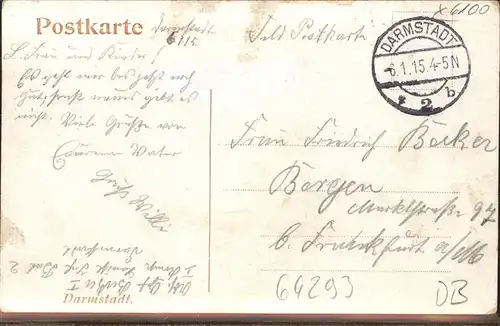 Postkarte
Darmstadt
6/1 15.
Feld Postkarte
x6100
DARMSTADT
6.1.15.4-5N
* 2 b
L. Frau und Kinder!
Es geht mir bis jetzt noch
gut, sonst neues gibt es
nicht. Viele Grüße von
Eurem Vater
Gruß Willi
Frau Friedrich Becker
Bergen
Marktstraße 97
b. Frankfurt a/M
64293
DB
Darmstadt
Darmstadt.